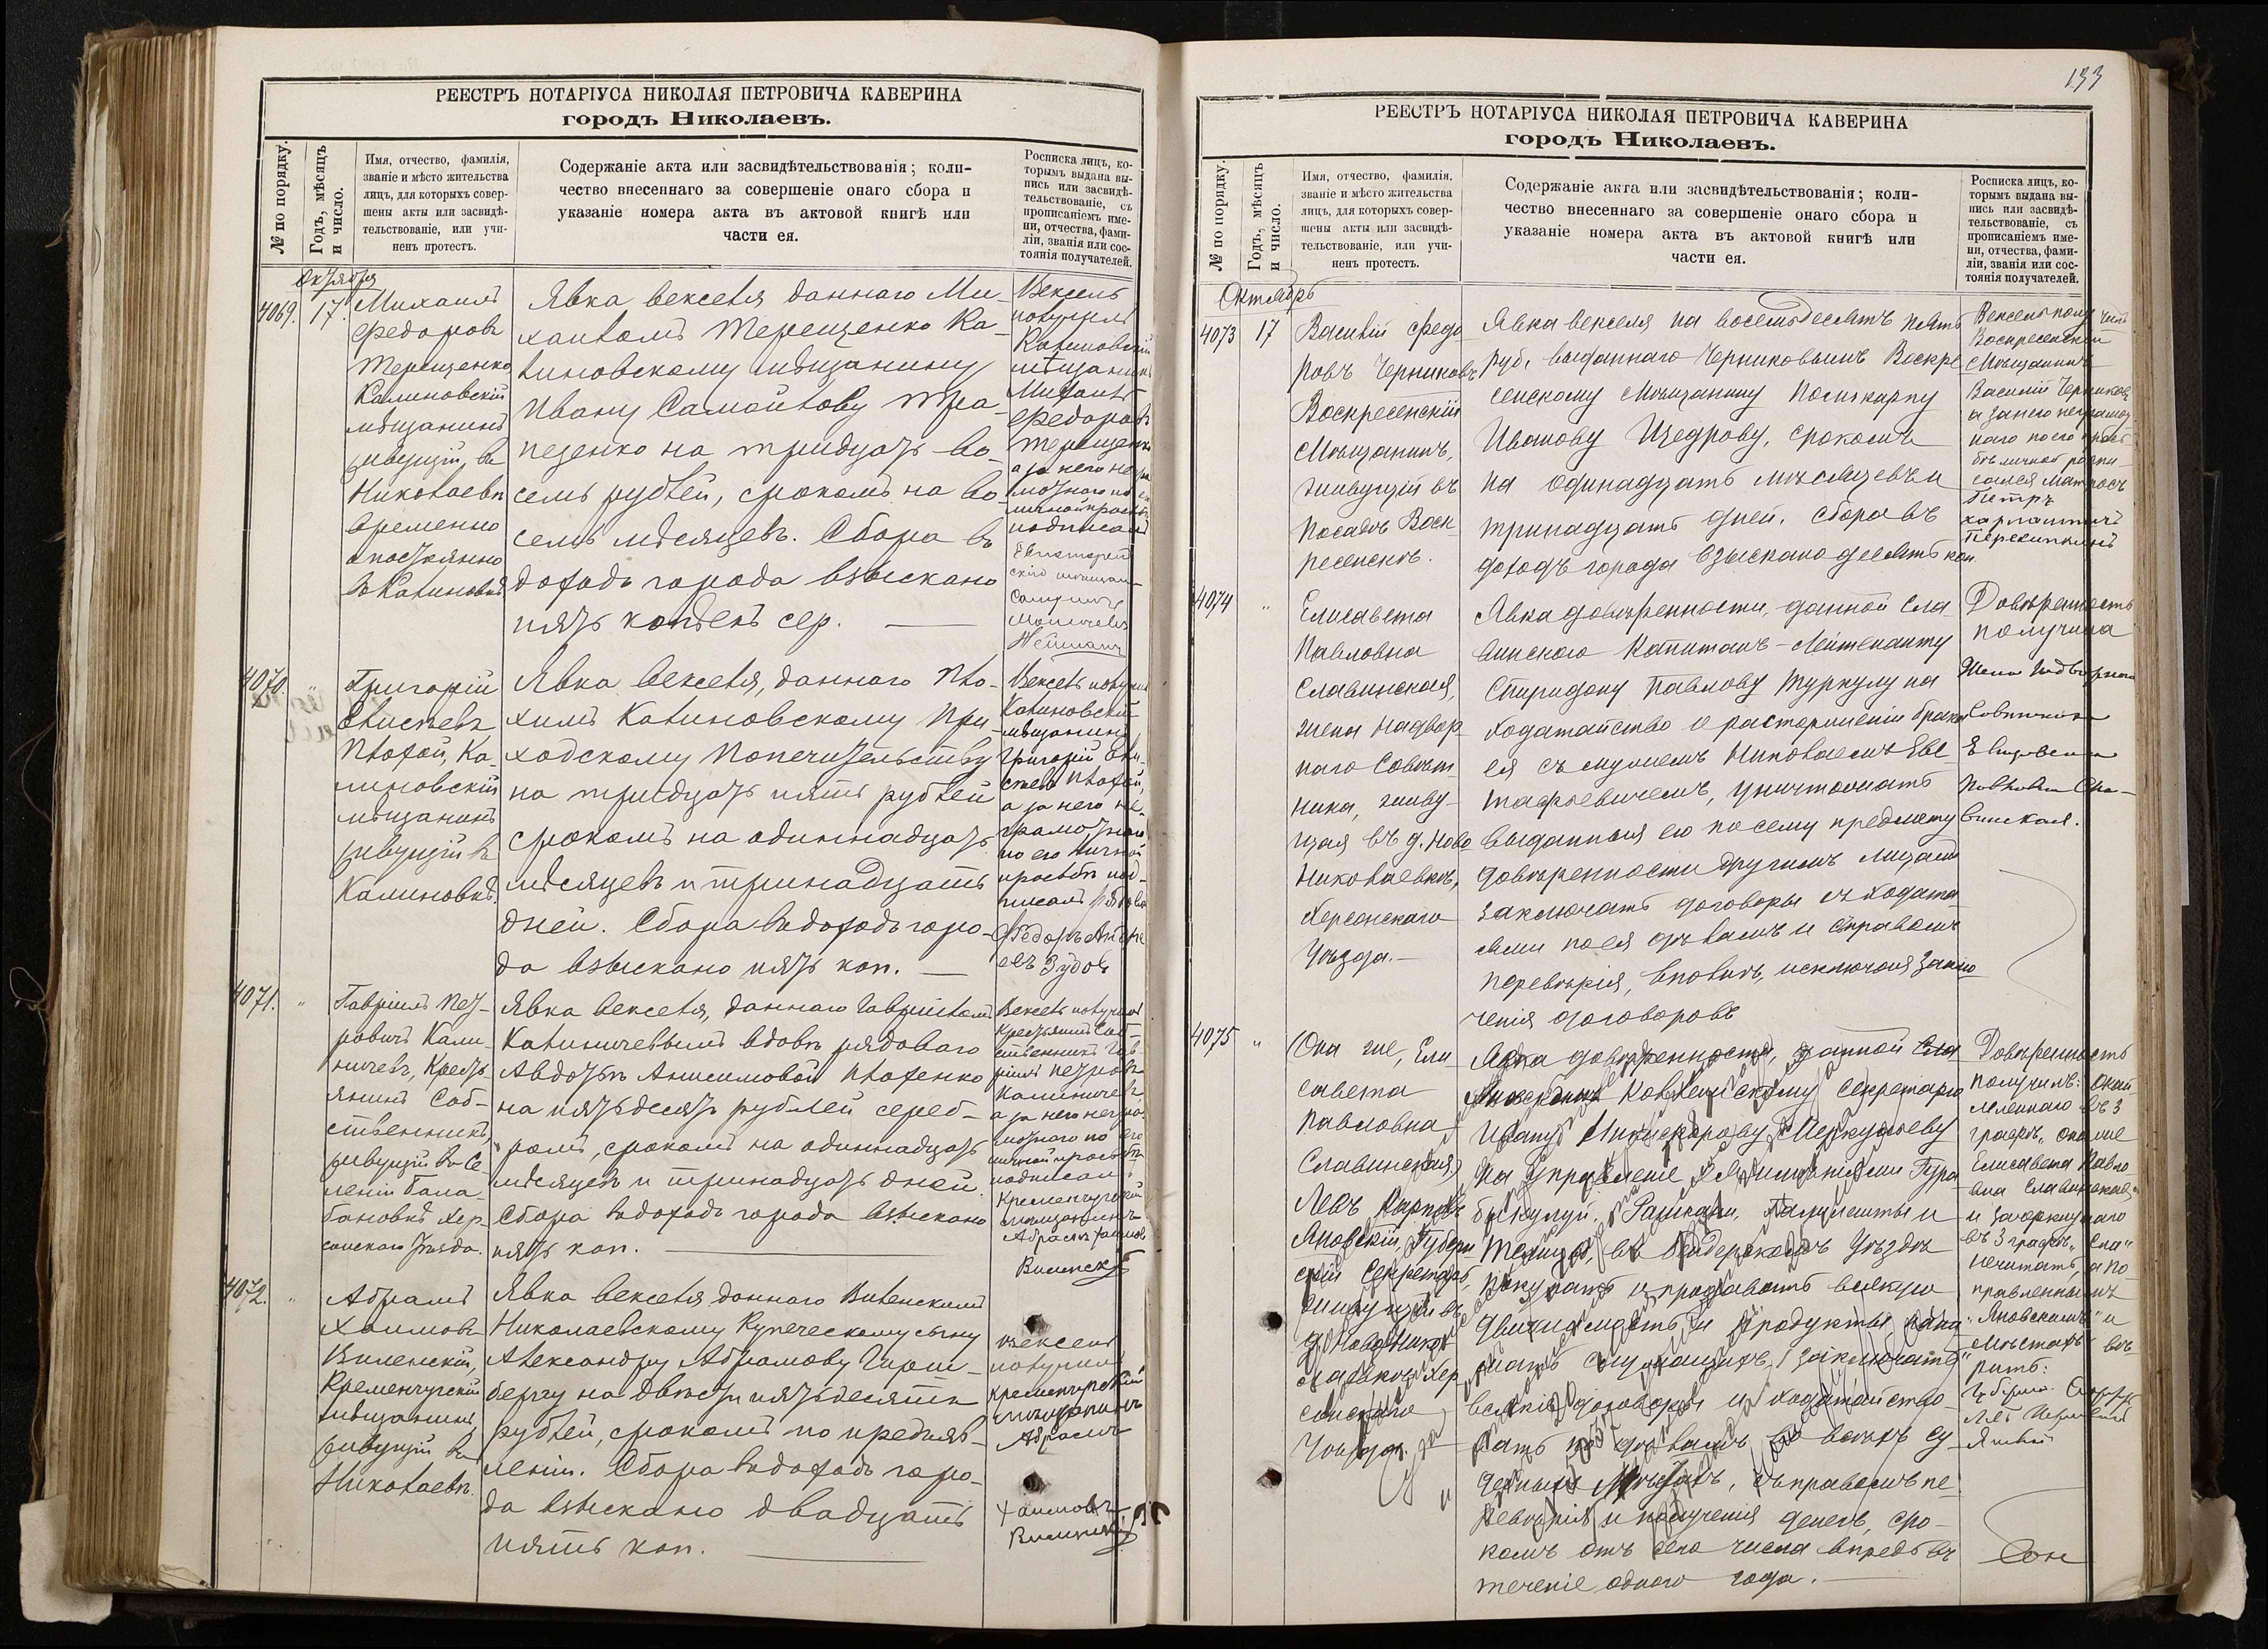 РЕЕСТРЪ НОТАРІУСА НИКОЛАЯ ПЕТРОВИЧА КАВЕРИНА
городъ Николаевъ.
№ по порядку.
Годъ, мѣсяцъ
и число.
Имя, отчество, фамилія,
званіе и мѣсто жительства
лицъ, для которыхъ совер-
шены акты или засвидѣ-
тельствованіе, или учи-
ненъ протестъ.
Содержаніе акта или засвидѣтельствованія; коли-
чество внесеннаго за совершеніе онаго сбора и
указаніе номера акта въ актовой книгѣ или
части ея.
Росписка лицъ, ко-
торымъ выдана вы-
пись или засвидѣ-
тельствованіе, съ
прописаніемъ име-
ни, отчества, фами-
ліи, званія или сос-
тоянія получателей.
Октября
4069.
17.
Михаилъ
Федоровъ
Терещенко
Калиновскій
мѣщанинъ
живущій въ
Николаевѣ
временно
а постоянно
въ Калиновкѣ
Явка векселя даннаго Ми-
хаиломъ Терещенко Ка-
линовскому мѣщанину
Ивану Самойлову Тра-
пезенко на тридцать во-
семь рублей, срокомъ на во-
семь мѣсяцевъ. Сбора въ
доходъ города взыскано
пять копѣекъ сер.
Вексель
получилъ
Калиновскій
мѣщанинъ
Михаилъ
Федоровъ
Терещенко
а за него негра
мотнаго по его
личной просьбѣ
подписалъ
4070.
"
Григорій
Плохой, Ка-
линовскій
мѣщанинъ
живущій въ
Калиновкѣ.
Явка векселя, даннаго Пло-
химъ Калиновскому При-
ходскому Попечительству
на тридцать пять рублей
срокомъ на одиннадцать
мѣсяцевъ и тринадцать
дней. Сбора въ доходъ горо-
да взыскано пять коп.
Вексель получилъ
Калиновскій
мѣщанинъ
Григорій
Плохой,
а за него не-
грамотнаго
по его личной
просьбѣ под-
писалъ
Федоръ Андре
евъ Зудовъ
4071.
"
Гавріилъ Пет-
ровичъ Кали-
ничевъ, Кресть-
янинъ Соб-
ственникъ,
живущій въ Се-
леніи Бала-
бановкѣ Хер-
сонскаго Уѣзда.
Явка векселя, даннаго Гавріиломъ
Калиничевымъ вдовѣ рядоваго
Авдотьѣ Анисимовой Плохенко
на пятьдесятъ рублей сереб-
ромъ, срокомъ на одиннадцать
мѣсяцевъ и тринадцать дней.
Сбора въ доходъ города взыскано
пять коп.
Вексель получилъ
Крестьянинъ Соб-
ственникъ Гав-
ріилъ Петровъ
Калиничевъ
а за него негра-
мотнаго по его
личной просьбѣ
подписалъ
Кременчугскій
мѣщанинъ
Абрамъ Хаимовъ
Виленскій
4072.
"
Абрамъ
Хаимовъ
Виленскій,
Кременчугскій
мѣщанинъ,
живущій въ
Николаевѣ.
Явка векселя даннаго Виленскимъ
Николаевскому Купеческому сыну
Александру Абрамову Гирш-
бергу на двѣсти пятьдесятъ
рублей, срокомъ по предъяв-
ленію. Сбора въ доходъ горо-
да взыскано двадцать
пять коп.
вексель
получилъ
Кременчугскій
мѣщанинъ
Абрамъ
Хаимовъ
Виленскій
133
РЕЕСТРЪ НОТАРІУСА НИКОЛАЯ ПЕТРОВИЧА КАВЕРИНА
городъ Николаевъ.
№ по порядку.
Годъ, мѣсяцъ
и число.
Имя, отчество, фамилія,
званіе и мѣсто жительства
лицъ, для которыхъ совер-
шены акты или засвидѣ-
тельствованіе, или учи-
ненъ протестъ.
Содержаніе акта или засвидѣтельствованія; коли-
чество внесеннаго за совершеніе онаго сбора и
указаніе номера акта въ актовой книгѣ или
части ея.
Росписка лицъ, ко-
торымъ выдана вы-
пись или засвидѣ-
тельствованіе, съ
прописаніемъ име-
ни, отчества, фами-
ліи, званія или сос-
тоянія получателей.
Октябрь
4073
17
Василій Федо
ровъ Черниковъ
Воскресенскій
Мѣщанинъ,
живущій въ
посадѣ Воск-
ресенскѣ.
Явка векселя на восемьдесятъ пять
руб. выданнаго Черниковымъ Воскре
сенскому Мѣщанину Поликарпу
Иванову Щедрову, срокомъ
на одинадцать мѣсяцевъ и
тринадцать дней. Сбора въ
доходъ города взыскано десять коп.
Вексель получилъ
Воскресенскій
Мѣщанинъ
Василій Черниковъ
а за него неграмот
наго по его прось
бѣ личной распи-
сался Матросъ
Петръ
4074
"
Елисавета
Павловна
Славинская,
жена надвор-
наго Совѣт-
ника, живу-
щая въ д. Ново
Николаевкѣ,
Херсонскаго
Уѣзда.
Явка довѣренности, данной Сла
винскою Капитанъ-Лейтенанту
Спиридону Павлову Туркулу на
ходатайство о расторженіи брака
ея съ мужемъ Николаемъ Евс
тафьевичемъ, уничтожать
выданныя ею по сему предмету
довѣренности другимъ лицамъ
заключать договоры съ ходата
ями по ея дѣламъ и съ правомъ
перевѣрія, вновь, исключая заклю
ченія договоровъ
Довѣренность
получила
Жена Надворнаго
Совѣтника
Елисавета
Павловна Сла-
винская.
4075
"
Она же, Ели
савета
Павловна
Славинская
Левъ Карповъ
Яновскій, Губерн
скій Секретарь,
живущій въ
д. Ново Нико
лаевкѣ Хер
сонскаго
Уѣзда.
Явка довѣренности, данной Сла
Секретарю
Ивану Меркульеву
на управленіе имѣніями Гура
быкулуй, Рашкани, Паланешты и
въ Бендерскомъ Уѣздѣ
покупать и продавать всякую
движимость и продукты, нани
мать служащихъ, заключать
всякіе договоры и ходатайство-
вать по дѣламъ во всѣхъ су-
дебныхъ Мѣстахъ, съ правомъ пе
ревѣрія и полученія денегъ, сро-
комъ отъ сего числа впредь въ
теченіе одного года.
Довѣренность
получилъ: Окай
мленнаго въ 3
графѣ, "Она же
Елисавета Павло
вна Славинская"
и зачеркнутаго
въ 3 графѣ, "Сла"
не читать, а по-
правленнымъ
"Яновскимъ" и
"Мѣстахъ" вѣ-
рить: